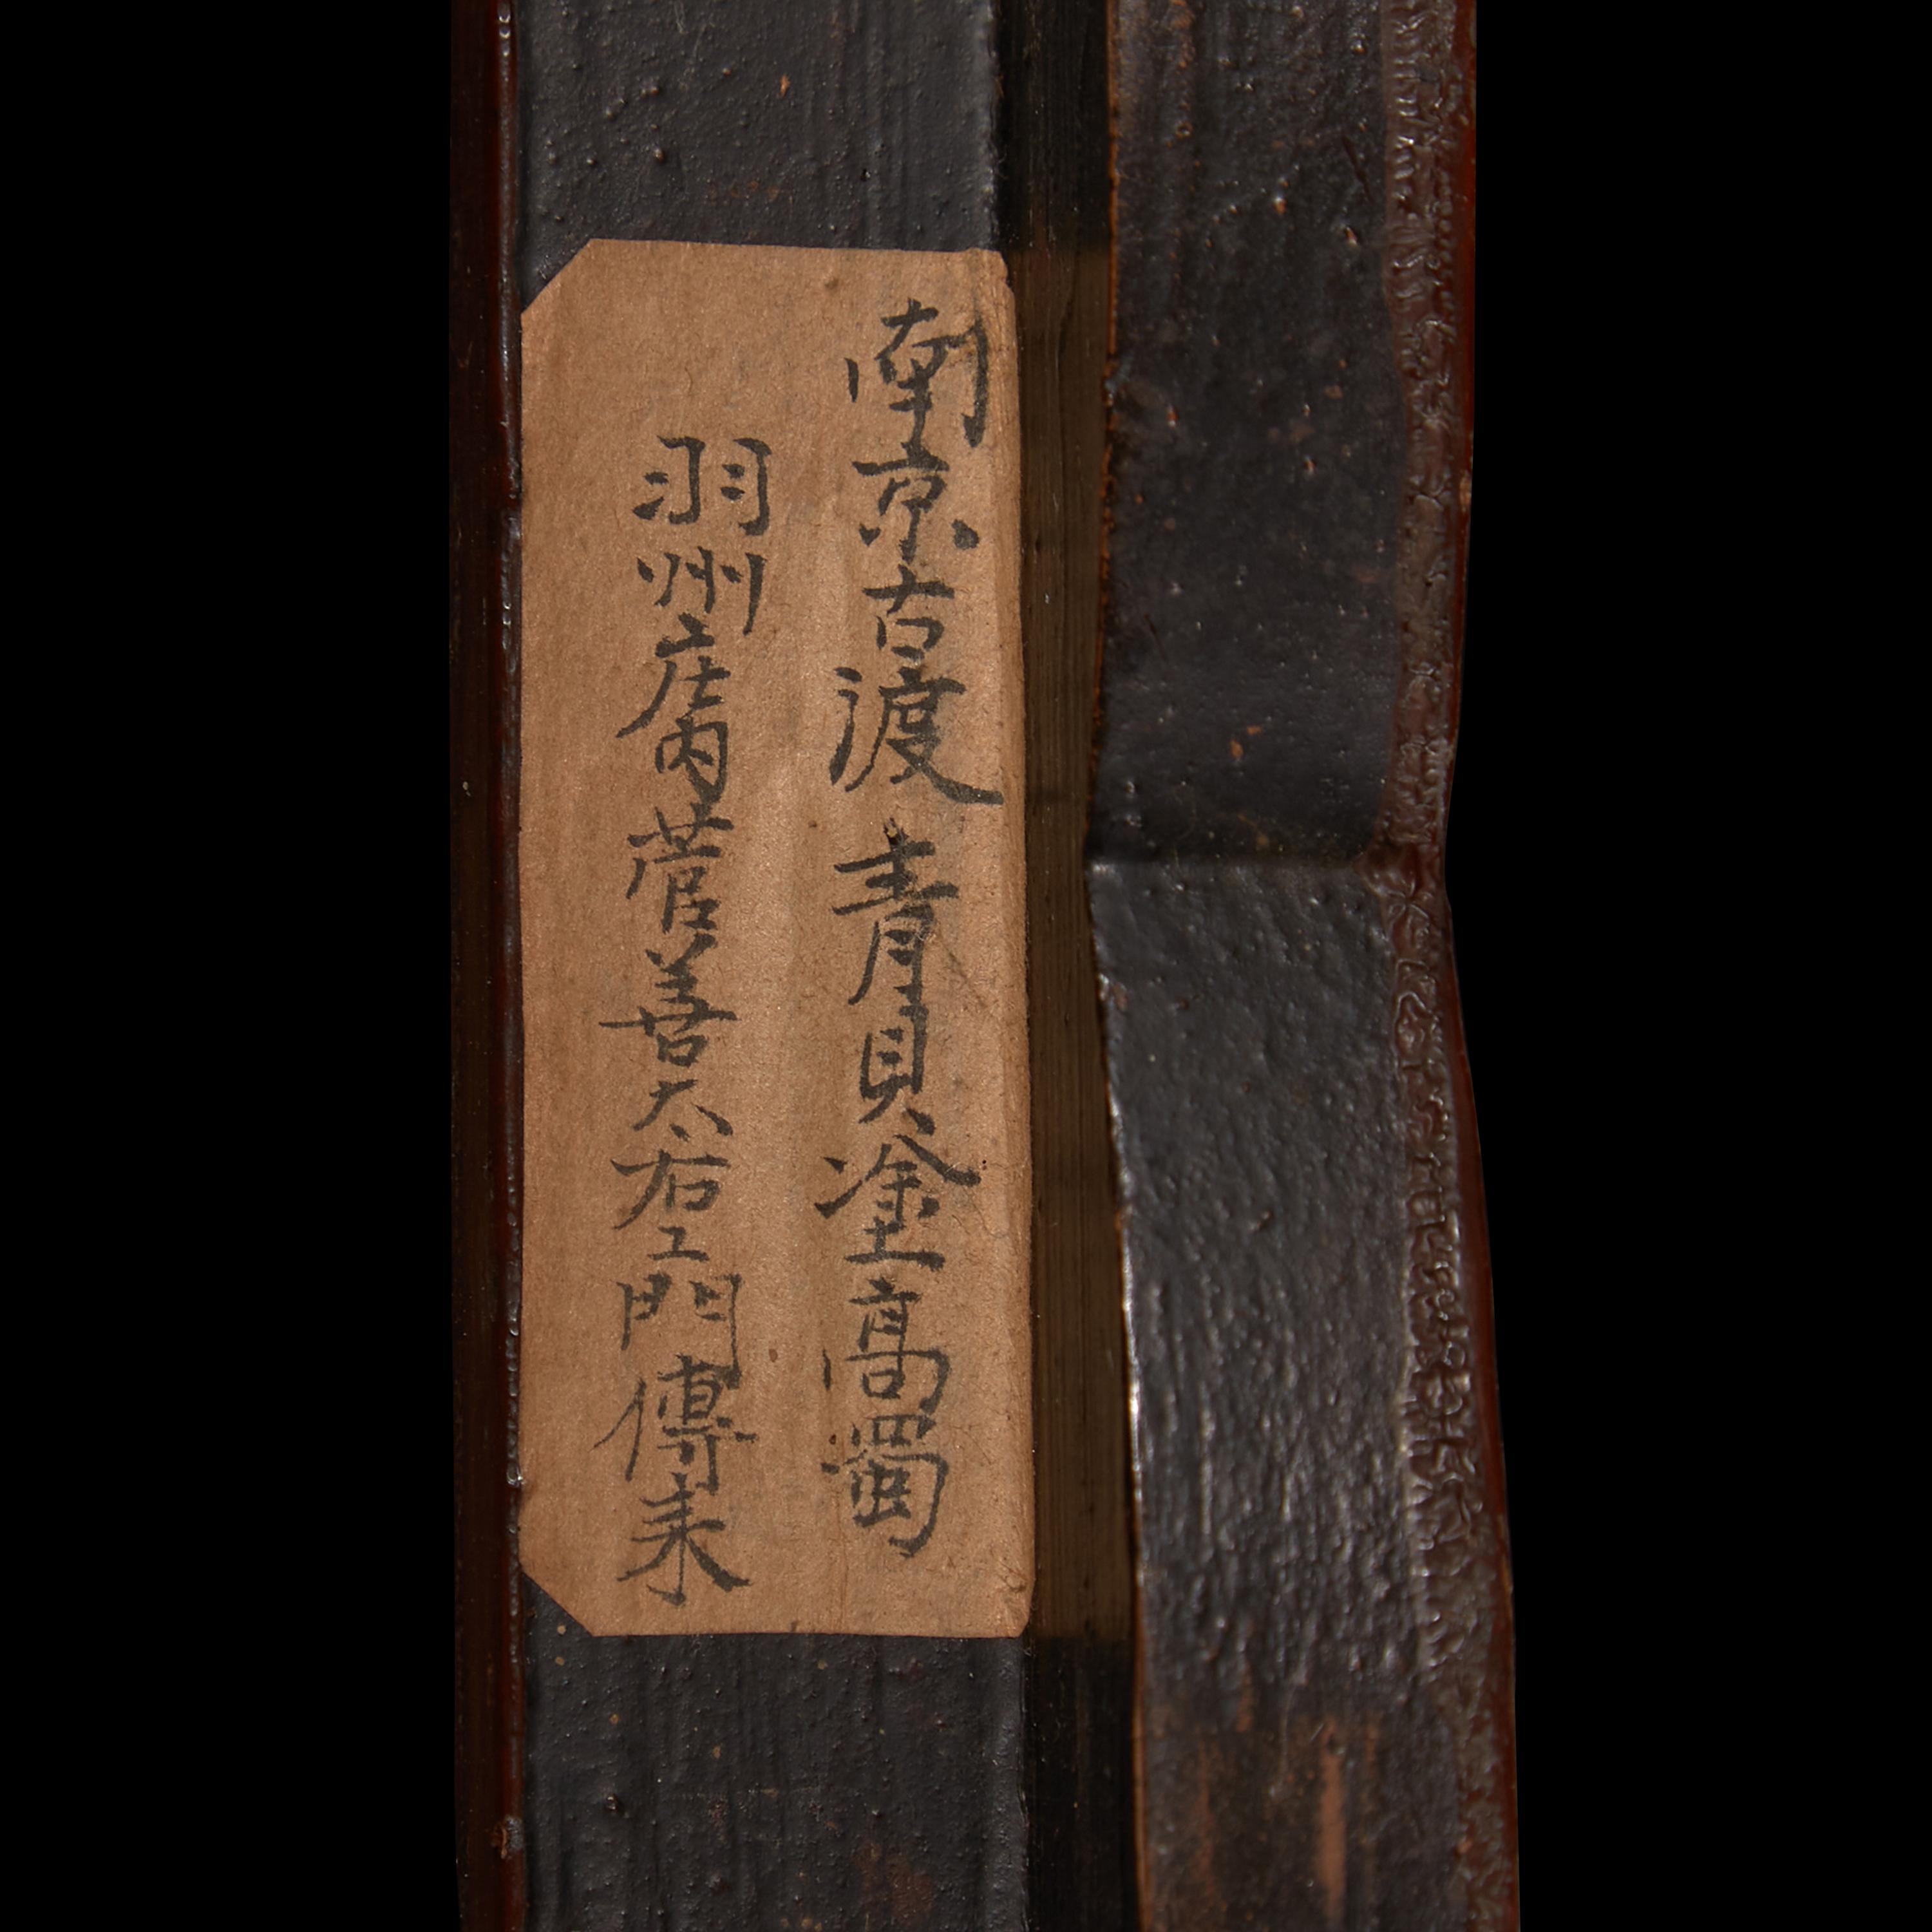 南京古渡青貝塗高蜀
羽州庄内菅善太右エ門傳来